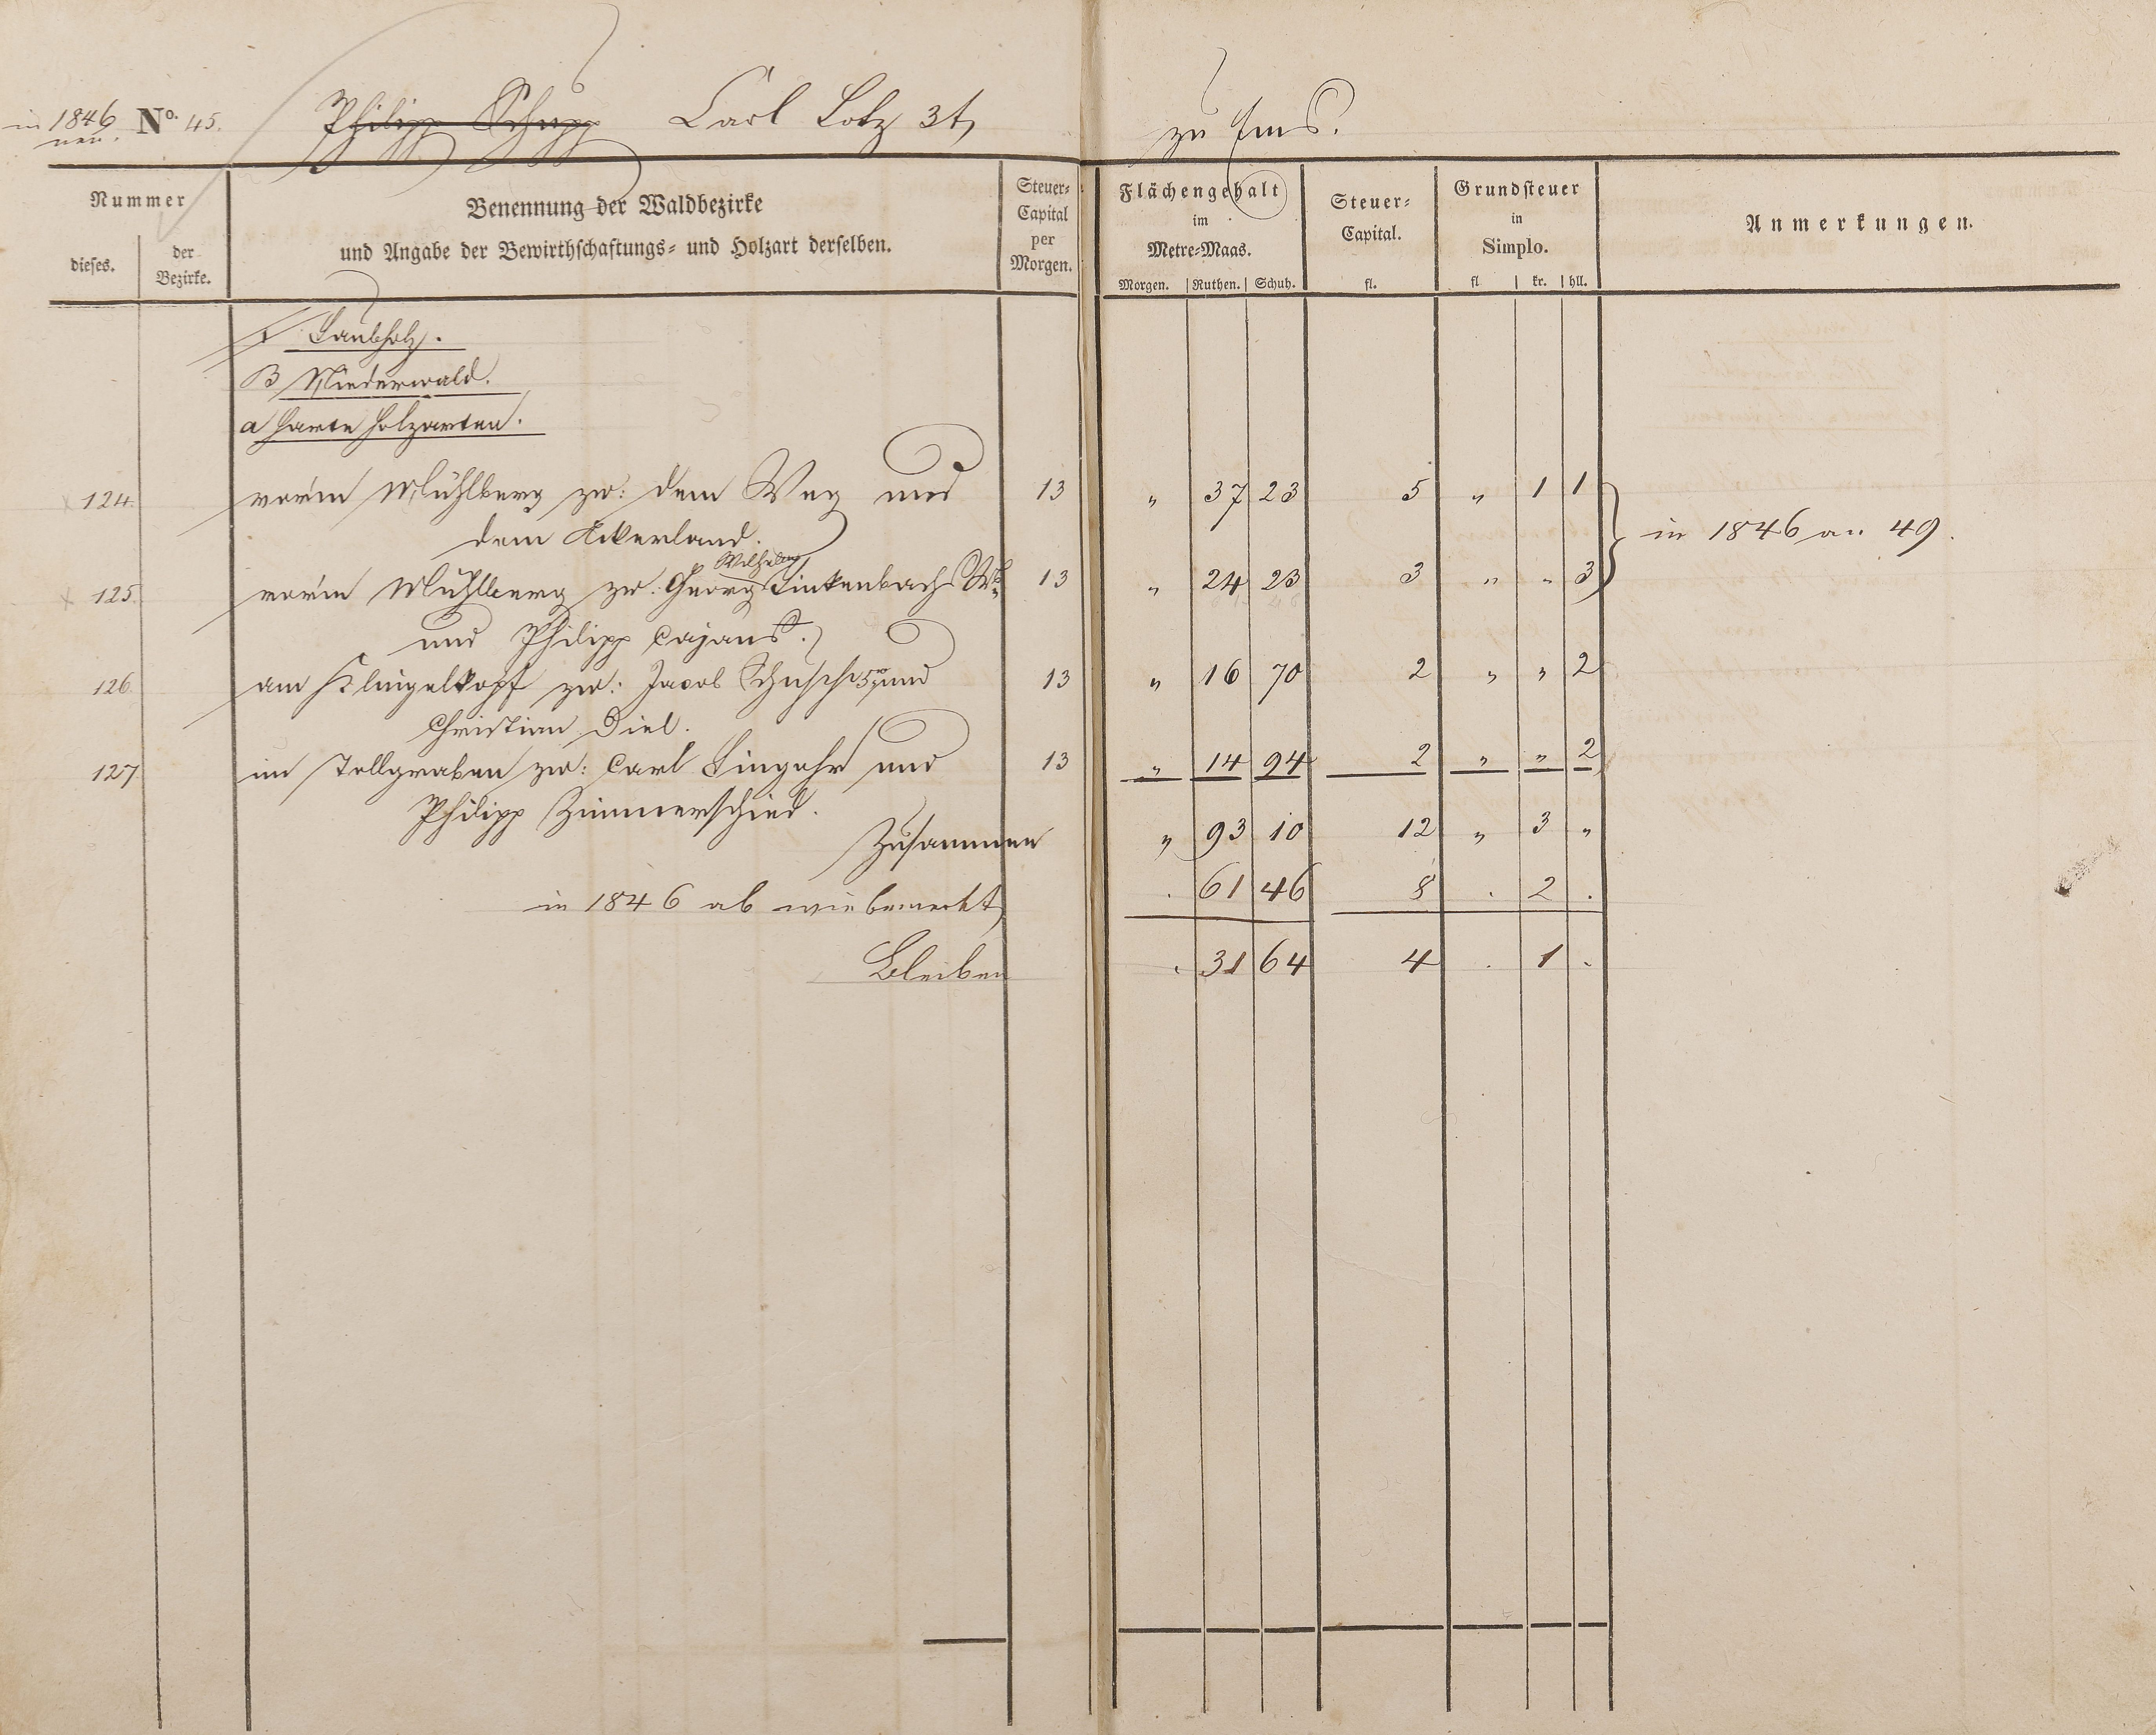 in 1846 neu. No. 45. Philipp Schupp Carl Lotz 3t zu Ems.
Nummer
dieses. der Bezirke.
Benennung der Waldbezirke
und Angabe der Bewirthschaftungs- und Holzart derselben.
Steuer-Capital per Morgen.
Flächengehalt im Metre-Maas.
Morgen. Ruthen. Schuh.
Steuer-Capital.
fl.
Grundsteuer in Simplo.
fl kr. hll.
Anmerkungen.
Laubholz.
B Niederwald.
a harte Holzarten.
124. vor'm Mühlberg zw: dem Weg und 13 " 37 23 5 " 1 1
dem Ackerland. } in 1846 an 49.
Wilhelm
125. vor'm Mühlberg zw: Georg Linkenbach 13 " 24 23 3 " " 3
und Philipp Cajans.
126. am Klingelkopf zw: Jacob und 13 " 16 70 2 " " 2
Christian Diel.
127 im Tollgraben zw: Carl Lingohr und 13 " 14 94 2 " " 2
Philipp Zimmerschied.
Zusammen " 93 10 12 " 3 "
in 1846 ab wie bemerkt . 61 46 8 . 2 .
Bleiben . 31 64 4 . 1 .